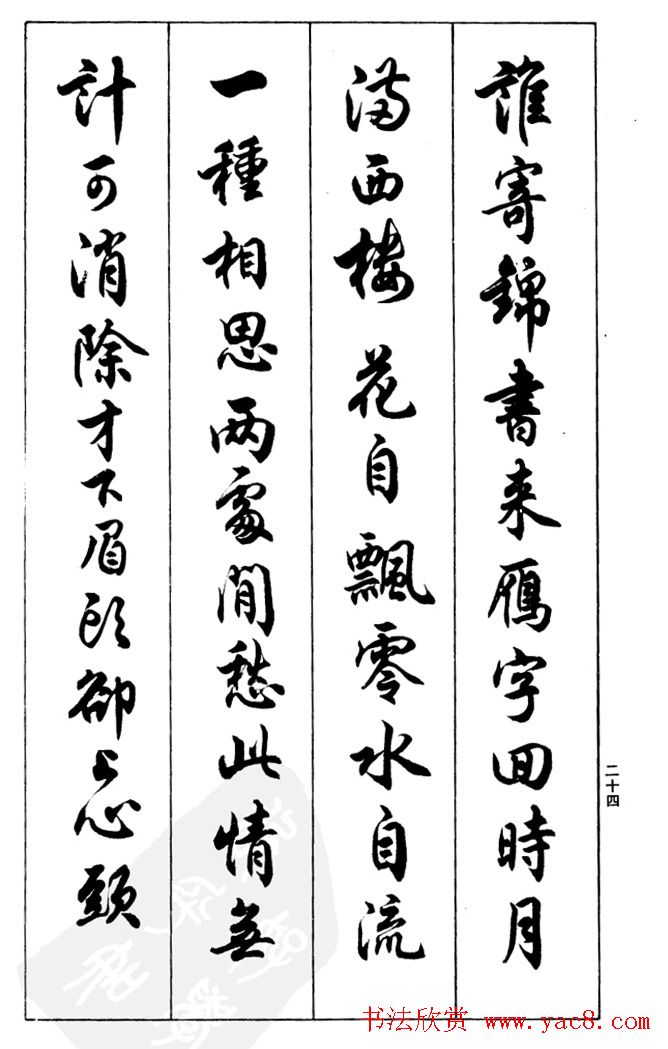 誰寄錦書来鴈字囬時月
滿西樓 花自飄零水自流
一種相思兩處閒愁此情無
計可消除才下眉頭卻上心頭
二十四
书法欣赏 www.yac8.com